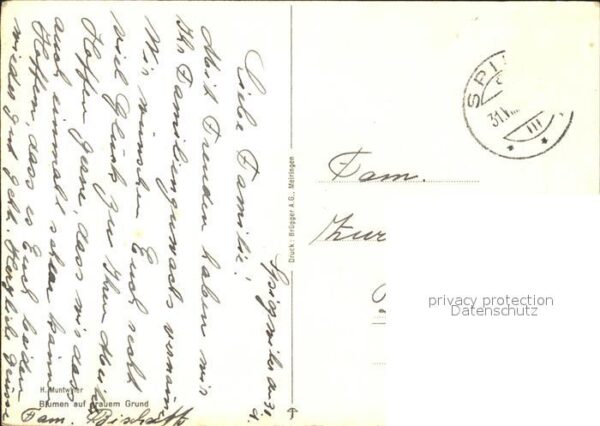 Liebe Familie!
Mit Freuden haben wir
Ihr Familienzuwachs vernommen
Wir wünschen Euch recht
viel Glück zu Ihrem
Hoffen gerne, dass wir das
auch einmal sehen können
Hoffen dass es Euch beiden
wieder gut geht. Herzlich Grüsse
Fam.
H. Muntwyler
Blumen auf grauem Grund
Druck: Brügger A.G., Meiringen
SPI
31.
III
Fam.
Zur
privacy protection
Datenschutz